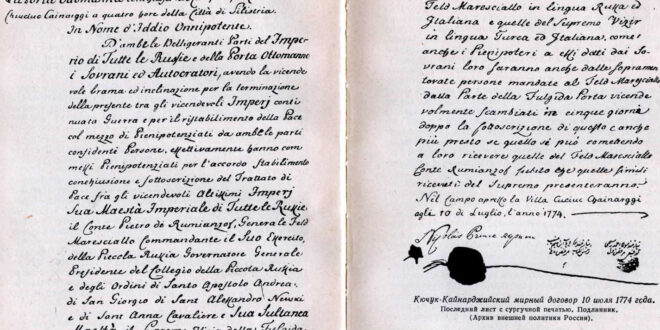 Chuciuc Cainarggi a quatro hore della Città di Silistria.
In Nome d'Iddio Onnipotente.
D'ambe le Belligeranti Parti del Imper
rio di Tutte le Russie e della Porta Ottomanna
i Sovrani ed Autocratori, avendo la vicende
vole brama ed inclinazione per la terminazione
della presente tra gli vicendevoli Imperj conti
nuata Guerra e per il ristabilimento della Pace
col mezzo di Plenipotenziati da ambe le parti
confidenti Persone, effettivamente hanno com
messi Plenipotenziati per l'accordo Stabilimento
conchiusione e sottoscrizione del Trattato di
Pace fra gli vicendevoli Altissimi Imperj
Sua Maestà Imperiale di Tutte le Russie.
il Conte Pietro de Rumianzof, Generale Feld
Maresciallo Commandante il Suo Esercito,
della Piccola Russia Governatore Generale
Presidente del Collegio della Piccola Russia
e degli Ordini di Santo Apostolo Andrea,
di San Giorgio di Sant Alessandro Newski
e di Sant Anna Cavaliere e Sua Sultanea
Feld Maresciallo in lingua Russa ed
Italiana e quelle del Supremo Vizir
in lingua Turca ed Italiana, come
anche i Plenipoteri a essi dati dai So
vrani loro saranno anche dalle sopramen
tovate persone mandate al Feld Maresciallo
dalla Parte della Fulgida Porta vicende
volmente Scambiati in cinque giorni
doppo la sottoscrizione di questo e anche
più presto se quello si può comettendo
a loro ricevere quelle del Feld Maresciallo
Conte Rumianzof subito che quelle simili
ricevuti del Supremo presenteranno.
Nel Campo apresso la Villa Cuciuc Chainarggi
agli 10 di Luglio, l'anno 1774.
Prince
Кючук-Кайнарджийский мирный договор 10 июля 1774 года.
Последний лист с сургучной печатью. Подлинник.
(Архив внешней политики России).